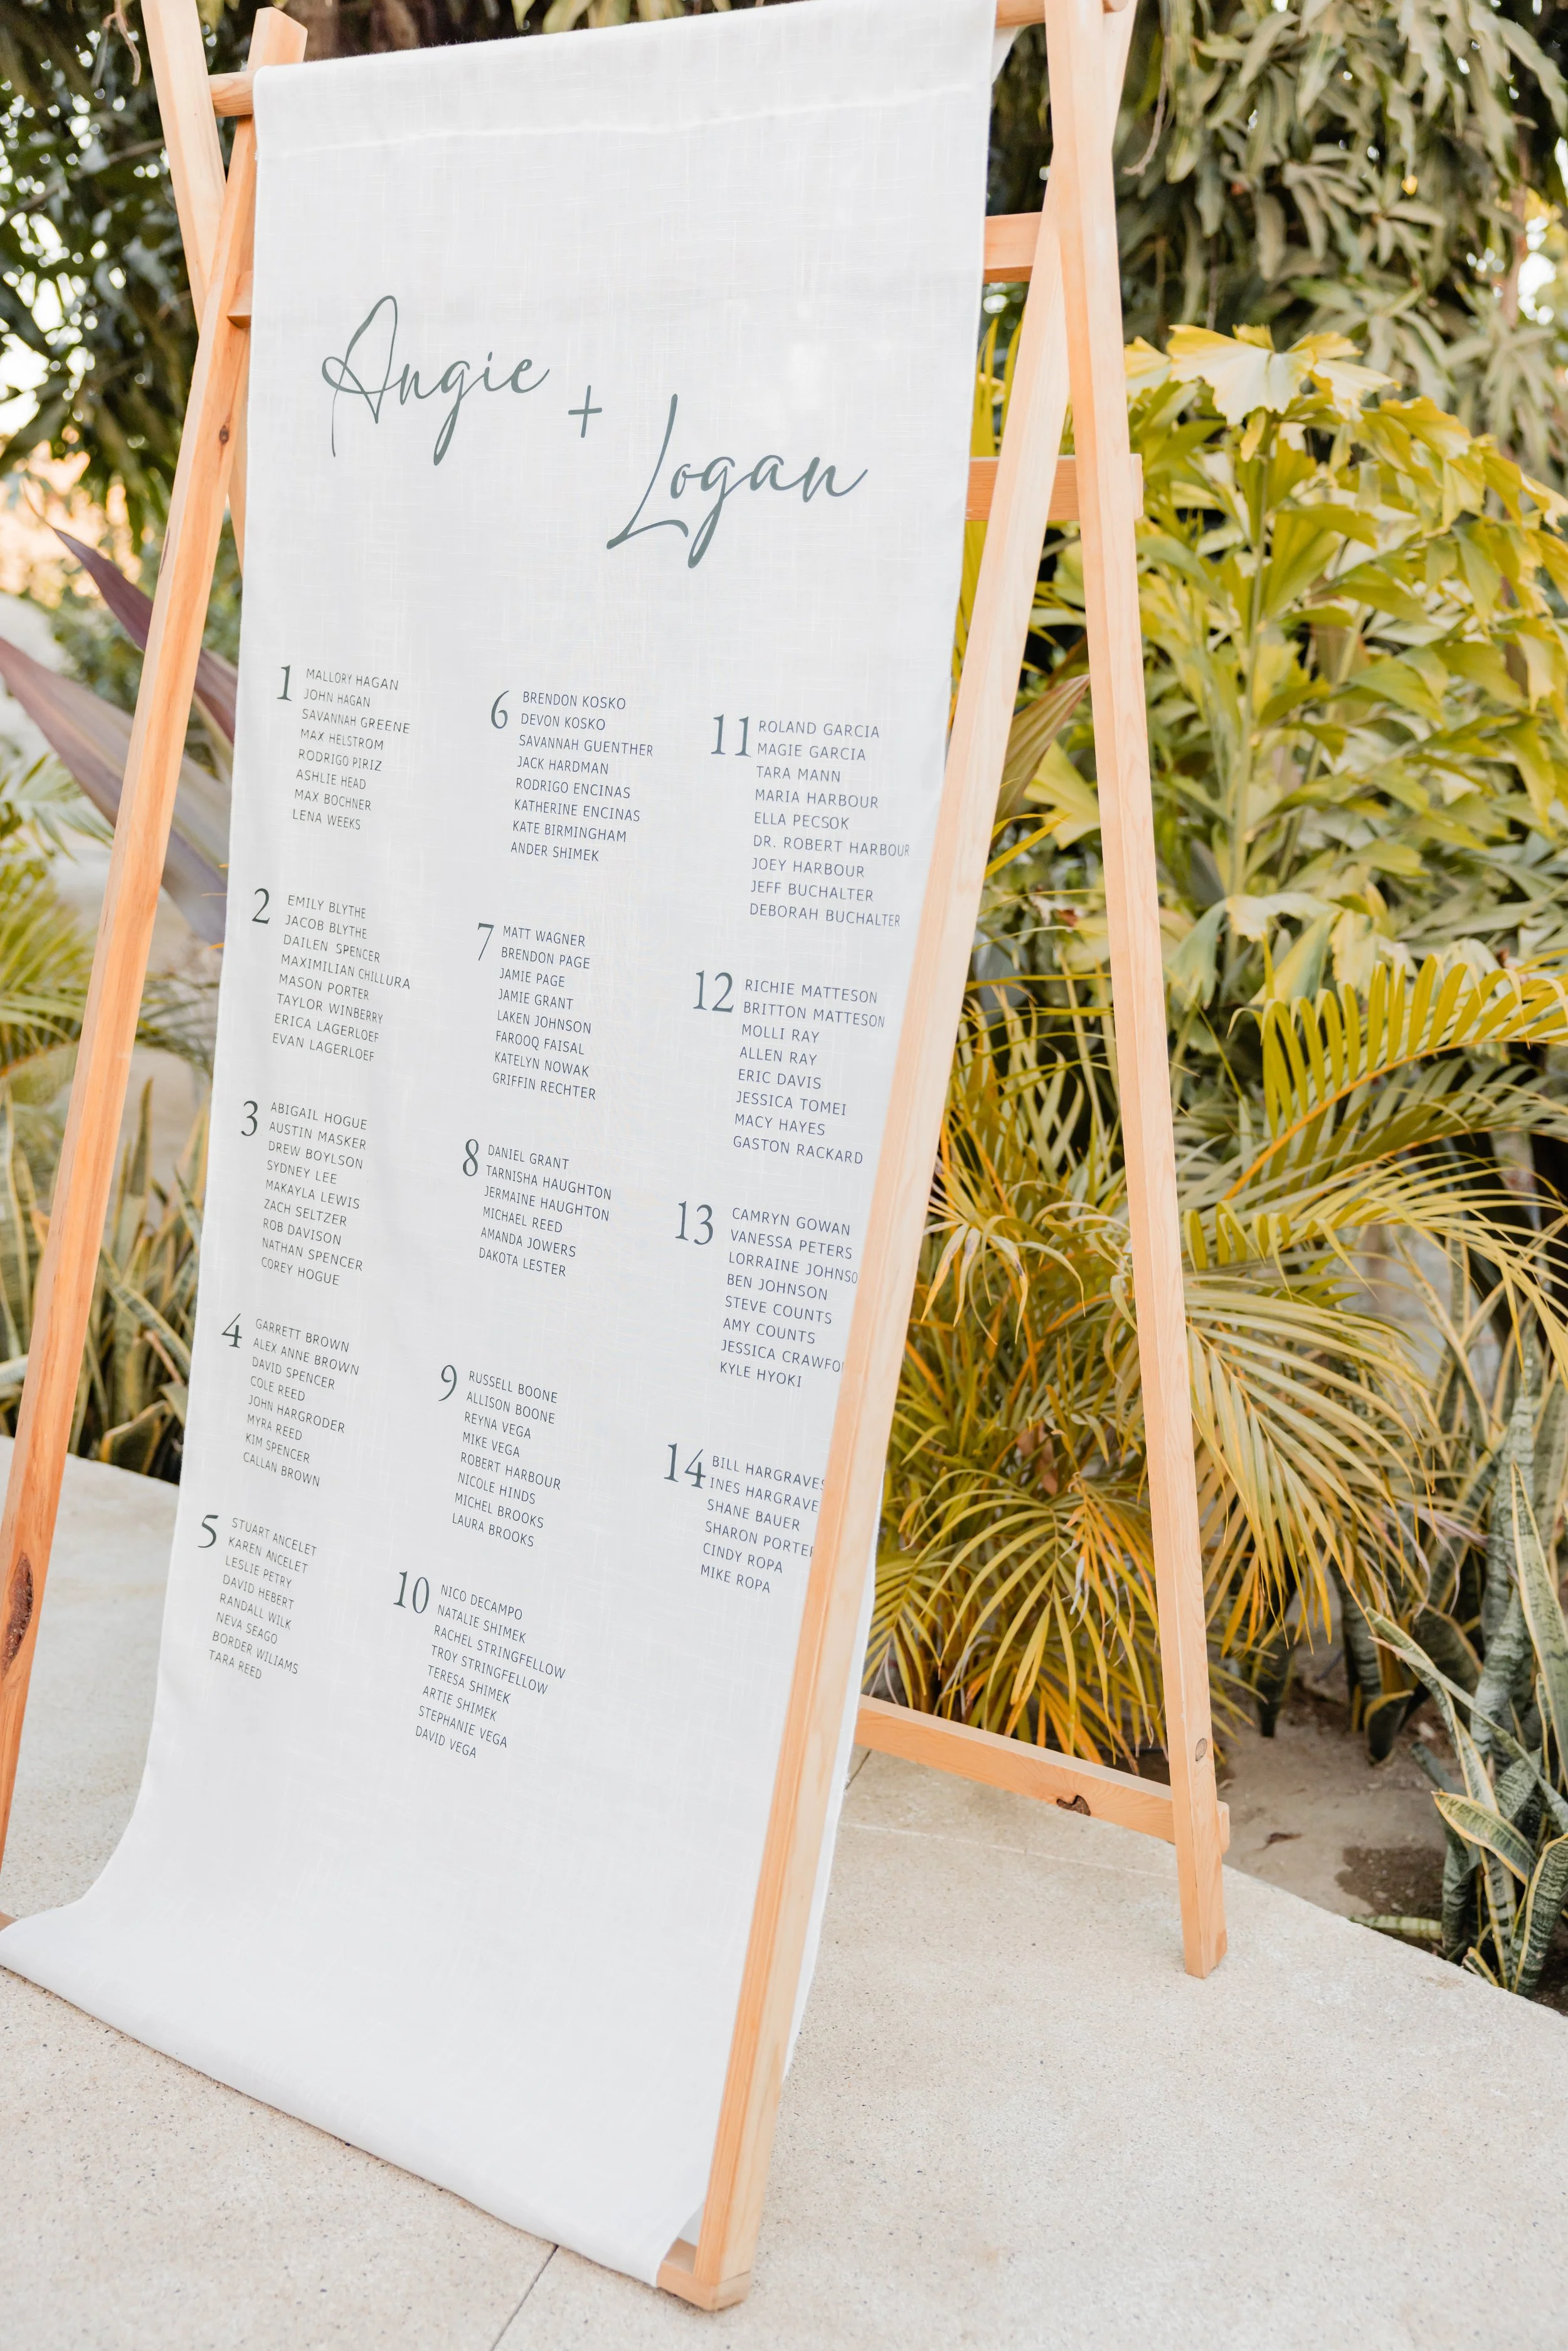 Angie + Logan
1
MALLORY HAGAN
JOHN HAGAN
SAVANNAH GREENE
MAX HELSTROM
RODRIGO PIRIZ
ASHLIE HEAD
MAX BOCHNER
LENA WEEKS
2
EMILY BLYTHE
JACOB BLYTHE
DAILEN SPENCER
MAXIMILIAN CHILLURA
MASON PORTER
TAYLOR WINBERRY
ERICA LAGERLOEF
EVAN LAGERLOEF
3
ABIGAIL HOGUE
AUSTIN MASKER
DREW BOYLSON
SYDNEY LEE
MAKAYLA LEWIS
ZACH SELTZER
ROB DAVISON
NATHAN SPENCER
COREY HOGUE
4
GARRETT BROWN
ALEX ANNE BROWN
DAVID SPENCER
COLE REED
JOHN HARGRODER
MYRA REED
KIM SPENCER
CALLAN BROWN
5
STUART ANCELET
KAREN ANCELET
LESLIE PETRY
DAVID HEBERT
RANDALL WILK
NEVA SEAGO
BORDER WILIAMS
TARA REED
6
BRENDON KOSKO
DEVON KOSKO
SAVANNAH GUENTHER
JACK HARDMAN
RODRIGO ENCINAS
KATHERINE ENCINAS
KATE BIRMINGHAM
ANDER SHIMEK
7
MATT WAGNER
BRENDON PAGE
JAMIE PAGE
JAMIE GRANT
LAKEN JOHNSON
FAROOQ FAISAL
KATELYN NOWAK
GRIFFIN RECHTER
8
DANIEL GRANT
TARNISHA HAUGHTON
JERMAINE HAUGHTON
MICHAEL REED
AMANDA JOWERS
DAKOTA LESTER
9
RUSSELL BOONE
ALLISON BOONE
REYNA VEGA
MIKE VEGA
ROBERT HARBOUR
NICOLE HINDS
MICHEL BROOKS
LAURA BROOKS
10
NICO DECAMPO
NATALIE SHIMEK
RACHEL STRINGFELLOW
TROY STRINGFELLOW
TERESA SHIMEK
ARTIE SHIMEK
STEPHANIE VEGA
DAVID VEGA
11
ROLAND GARCIA
MAGIE GARCIA
TARA MANN
MARIA HARBOUR
ELLA PECSOK
DR. ROBERT HARBOUR
JOEY HARBOUR
JEFF BUCHALTER
DEBORAH BUCHALTER
12
RICHIE MATTESON
BRITTON MATTESON
MOLLI RAY
ALLEN RAY
ERIC DAVIS
JESSICA TOMEI
MACY HAYES
GASTON RACKARD
13
CAMRYN GOWAN
VANESSA PETERS
LORRAINE JOHNSO
BEN JOHNSON
STEVE COUNTS
AMY COUNTS
JESSICA CRAWFO
KYLE HYOKI
14
BILL HARGRAVES
INES HARGRAVE
SHANE BAUER
SHARON PORTER
CINDY ROPA
MIKE ROPA